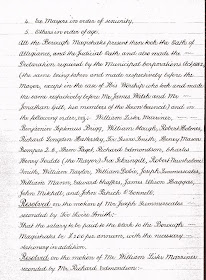 4. Ex Mayors in order of seniority.
5. Others in order of age.
All the Borough Magistrates present then took the Oath of
Allegiance, and the Judicial Oath and also made the
Declaration required by the Municipal Corporations Act 1882,
(the same being taken and made respectively before the
Mayor, except in the case of His Worship who took and made
the same respectively before Mr. James Welch and Mr.
Jonathan Gill, two members of the Town Council) and in
the following order, viz: William Luke Mariner,
Benjamin Septimus Brigg, William Haugh, Robert Holmes,
Richard Longden Hattersley, Sir Swire Smith, Henry Mason
Thom Pagel, Richard Edmondson, Charles
Henry Foulds (the Mayor) Ira Ickringill, Robert
Smith, William Naylor, William Joseph Summerscales,
William Mann, Edward James Wilson Wadsworth
John Mitchell, and John Patrick O'Connell.
Resolved on the motion of Mr. Joseph Summerscales
seconded by Sir Swire Smith:
That the salary to be paid to the Clerk to the Borough
Magistrates be £ per annum, with the necessary
stationery in addition.
Resolved on the motion of Mr. William Luke Mariner
seconded by Mr. Richard Edmondson: